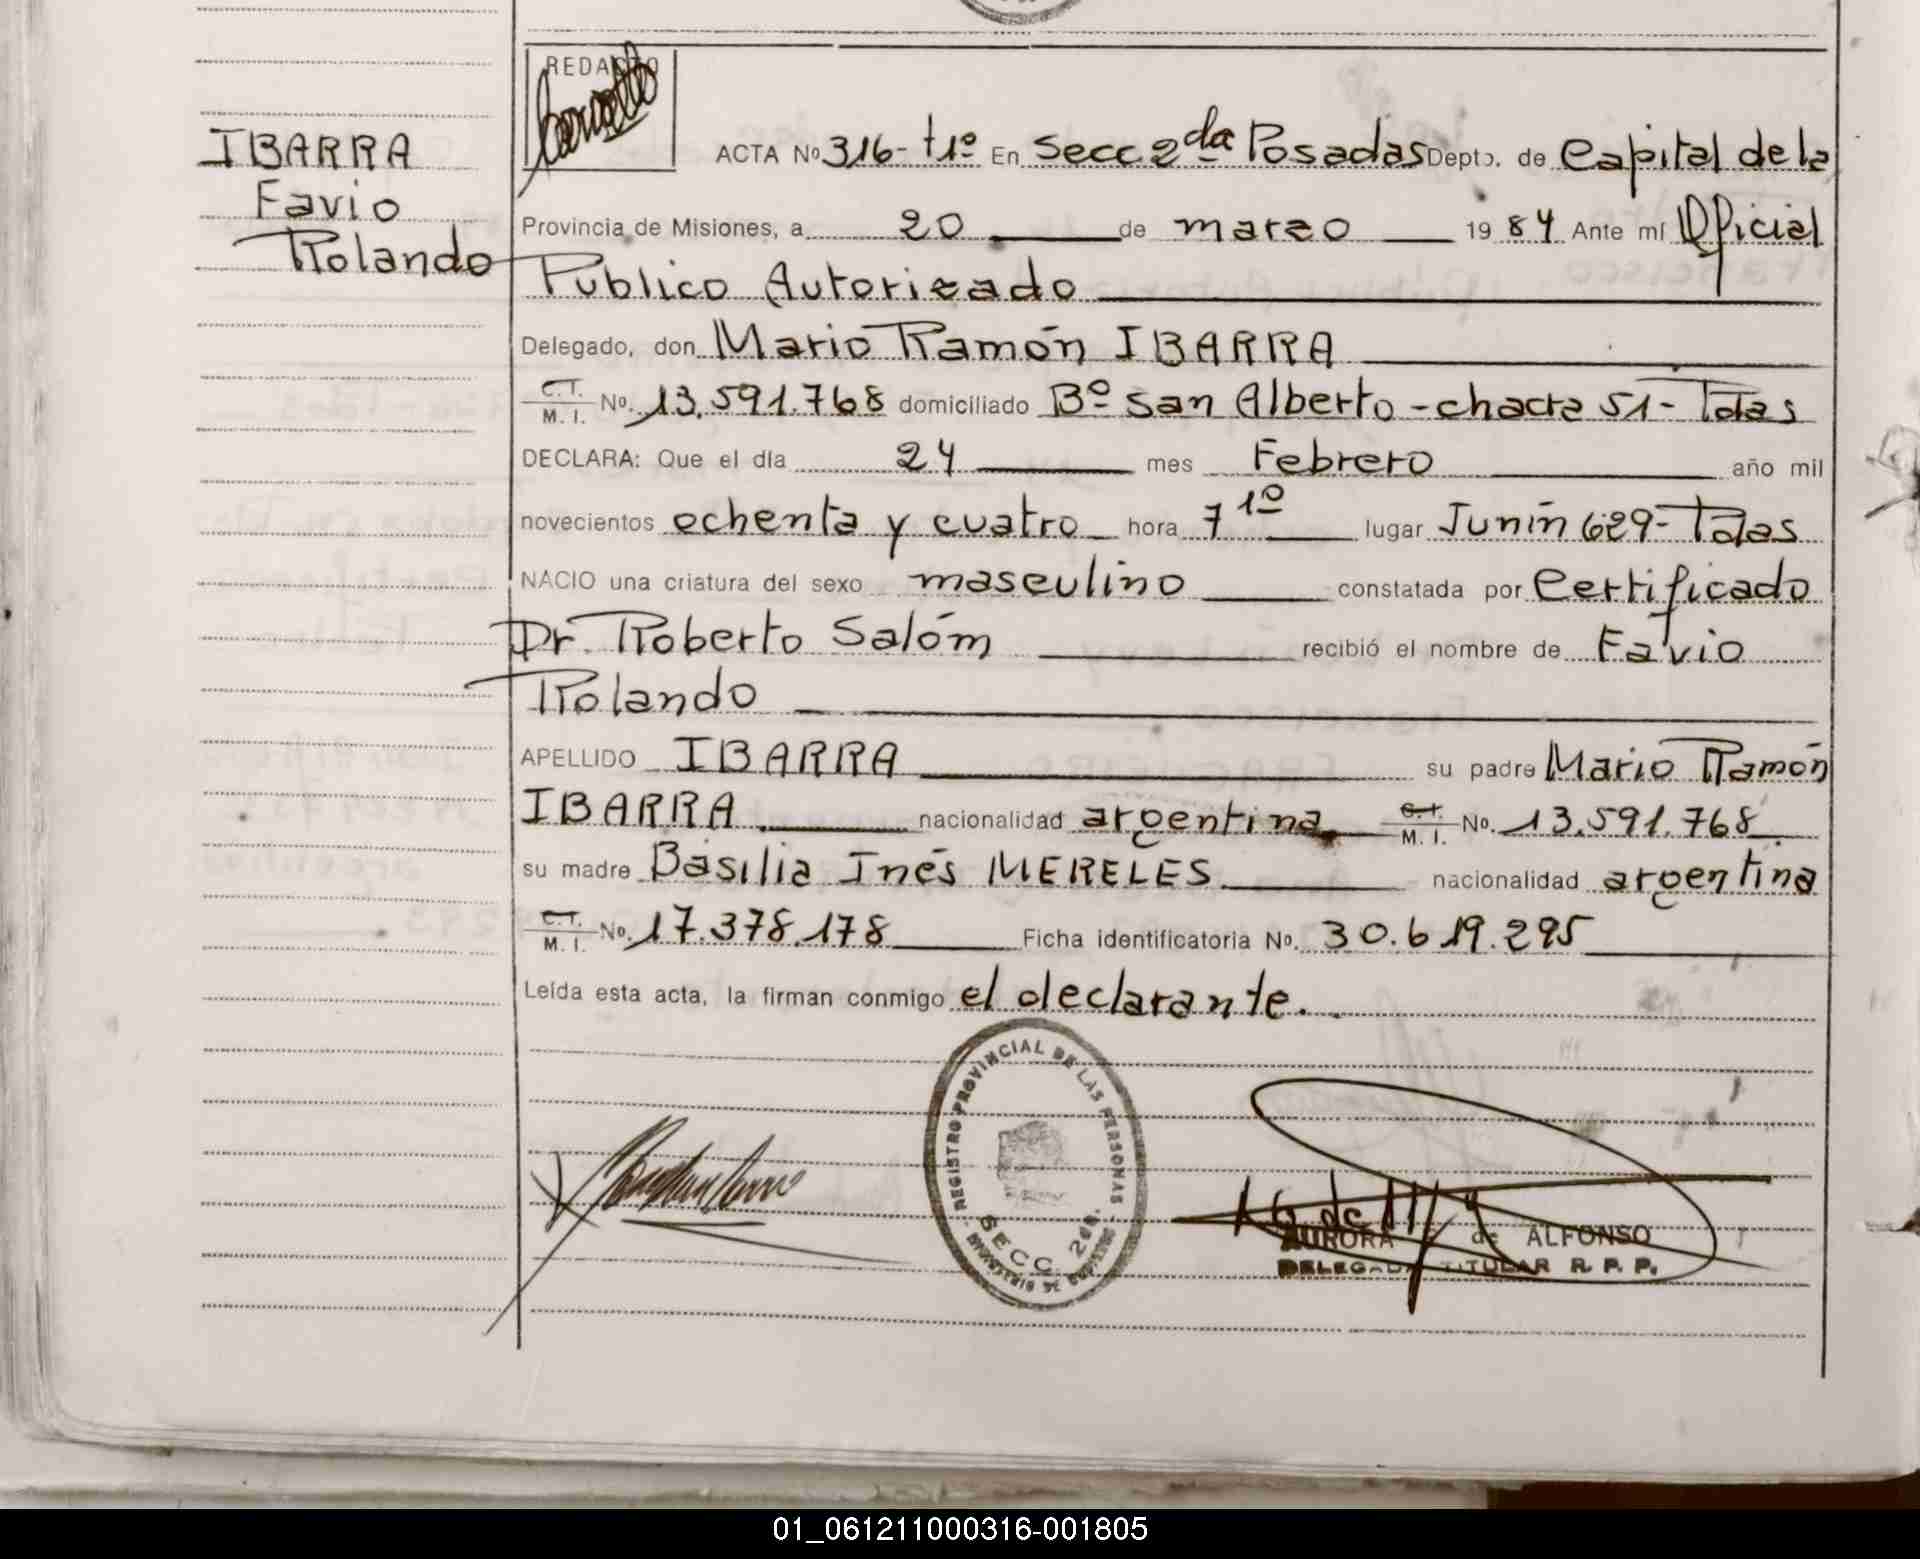 IBARRA
Favio
Rolando
REDACTO
ACTA Nº 316- t1º En Secc 2da Posadas Depto. de Capital de la
Provincia de Misiones, a 20 de marzo 1984 Ante mí Oficial
Publico Autorizado
Delegado, don Mario Ramón IBARRA
C.I. M.I. No. 13.591.768 domiciliado Bº San Alberto - chacra 51 - Pdas
DECLARA: Que el día 24 mes Febrero año mil
novecientos ochenta y cuatro hora 7 10 lugar Junín 629- Pdas
NACIO una criatura del sexo masculino constatada por Certificado
Dr. Roberto Salóm recibió el nombre de Favio
Rolando
APELLIDO IBARRA su padre Mario Ramón
IBARRA nacionalidad argentina C.I. M.I. No. 13.591.768
su madre Basilia Inés MERELES nacionalidad argentina
C.I. M.I. No. 17.378.178 Ficha identificatoria No. 30.619.295
Leída esta acta, la firman conmigo el declarante.
REGISTRO PROVINCIAL DE LAS PERSONAS
SECC 2da.
AURORA de ALFONSO
DELEGADA TITULAR R. P. P.
01_061211000316-001805